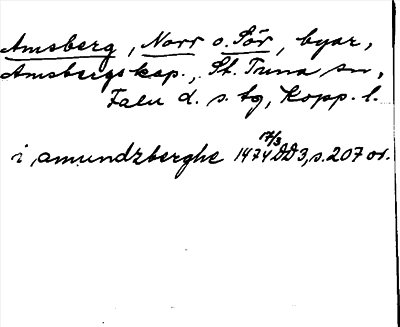 Amsberg, Norr o. Sör, byar,
Amsbergs kap., St. Tuna sn,
Falu d. s. tg, Kopp. l.
i amundzberghe 1474 17/3 DD3, s. 207 or.